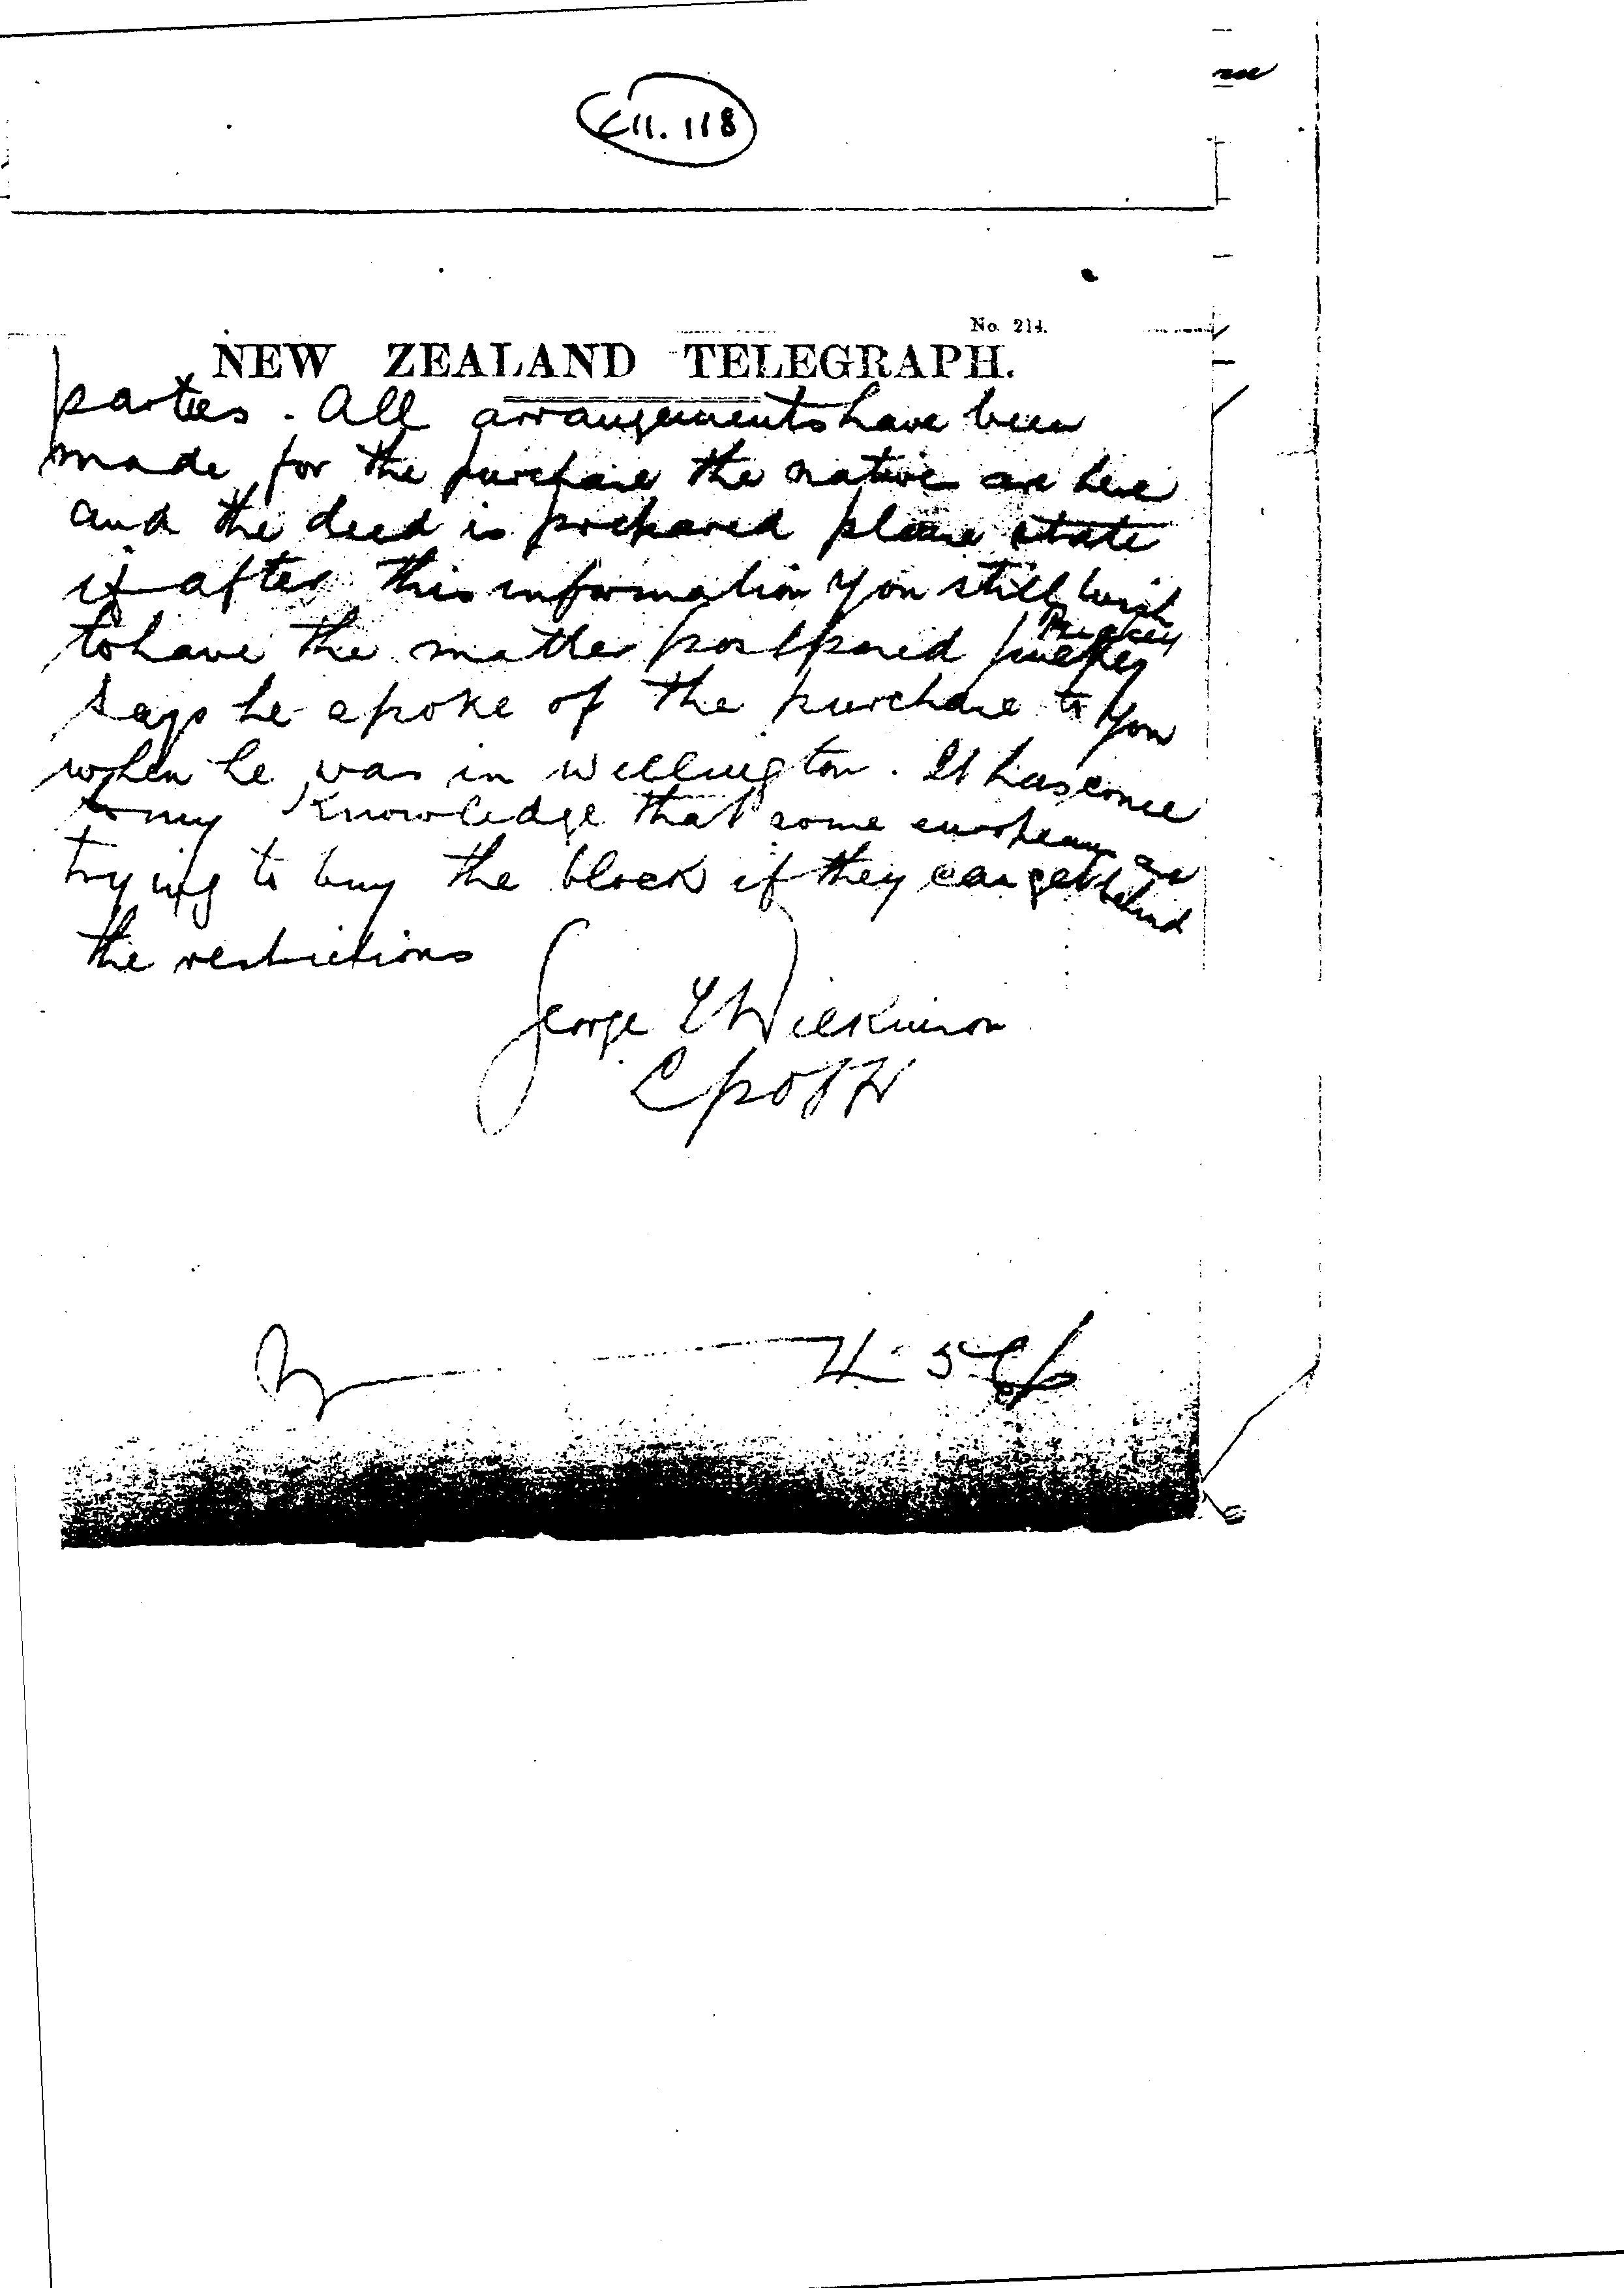 E11. 118
No. 214.
NEW ZEALAND TELEGRAPH.
parties. All arrangements have been
made for the purchase the natives are here
and the deed is prepared please state
if after this information you still wish
to have the matter postponed Puckey
says he spoke of the purchase to you
when he was in wellington. It has come
to my knowledge that some europeans are
trying to buy the block if they can get behind
the restrictions
George T Wilkinson